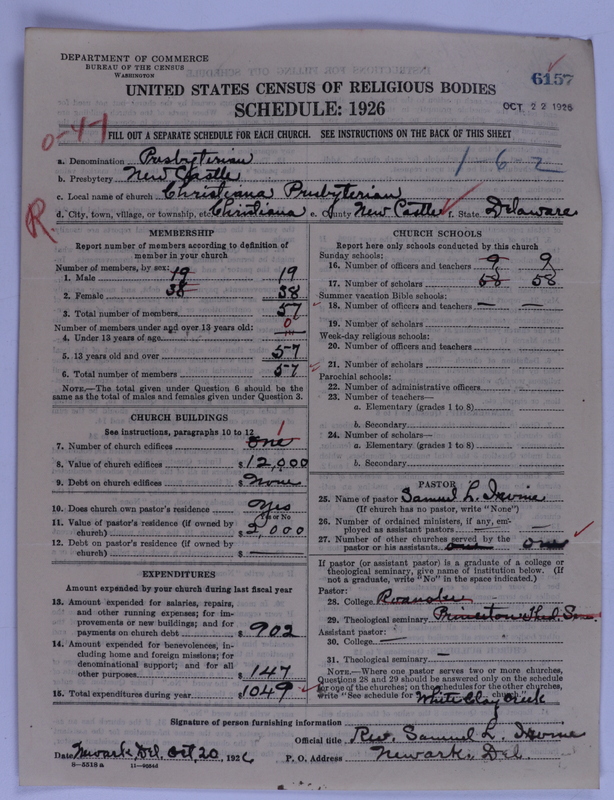 DEPARTMENT OF COMMERCE
BUREAU OF THE CENSUS
WASHINGTON
6157
UNITED STATES CENSUS OF RELIGIOUS BODIES
OCT 22 1926
SCHEDULE: 1926
0-44
FILL OUT A SEPARATE SCHEDULE FOR EACH CHURCH. SEE INSTRUCTIONS ON THE BACK OF THIS SHEET
a. Denomination Presbyterian
1 6 2
b. Presbytery New Castle
c. Local name of church Christiana Presbyterian
d. City, town, village, or township, etc. Christiana e. County New Castle f. State Delaware
R
MEMBERSHIP
Report number of members according to definition of
member in your church
Number of members, by sex:
1. Male 19 19
2. Female 38 38
3. Total number of members 57
Number of members under and over 13 years old:
4. Under 13 years of age 0
5. 13 years old and over 57
6. Total number of members 57
NOTE.—The total given under Question 6 should be the
same as the total of males and females given under Question 3.
CHURCH BUILDINGS
See instructions, paragraphs 10 to 12
7. Number of church edifices one 1
8. Value of church edifices $12,000
9. Debt on church edifices $None
10. Does church own pastor's residence Yes
Yes or No
11. Value of pastor's residence (if owned by
church) $2,000
12. Debt on pastor's residence (if owned by
church) $—
EXPENDITURES
Amount expended by your church during last fiscal year
13. Amount expended for salaries, repairs,
and other running expenses; for im-
provements or new buildings; and for
payments on church debt $902
14. Amount expended for benevolences, in-
cluding home and foreign missions; for
denominational support; and for all
other purposes $147
15. Total expenditures during year $1049
CHURCH SCHOOLS
Report here only schools conducted by this church
Sunday schools:
16. Number of officers and teachers 9 9
17. Number of scholars 58 58
Summer vacation Bible schools:
18. Number of officers and teachers — —
19. Number of scholars
Week-day religious schools:
20. Number of officers and teachers
21. Number of scholars
Parochial schools:
22. Number of administrative officers
23. Number of teachers—
a. Elementary (grades 1 to 8)
b. Secondary
24. Number of scholars—
a. Elementary (grades 1 to 8)
b. Secondary
PASTOR
25. Name of pastor Samuel L. Irvine
(If church has no pastor, write "None")
26. Number of ordained ministers, if any, em-
ployed as assistant pastors — —
27. Number of other churches served by the
pastor or his assistants one one
If pastor (or assistant pastor) is a graduate of a college or
theological seminary, give name of institution below. (If
not a graduate, write "No" in the space indicated.)
Pastor:
28. College Roanoke
29. Theological seminary Princeton Theol. Sem.
Assistant pastor:
30. College —
31. Theological seminary —
NOTE.—Where one pastor serves two or more churches,
Questions 28 and 29 should be answered only on the schedule
for one of the churches; on the schedules for the other churches,
write "See schedule for White Clay Creek
Signature of person furnishing information
Official title Rev. Samuel L. Irvine
Date Newark, Del. Oct 20, 1926 P. O. Address Newark, Del.
8—5518 a 11—9554d